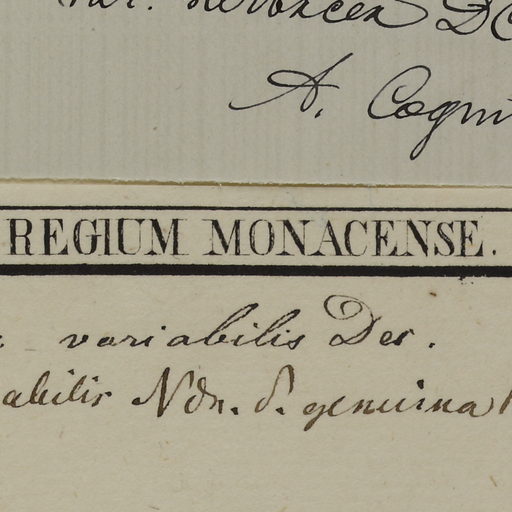 var. nervosa DC
A. Cogni
REGIUM MONACENSE.
variabilis Des.
abilis Ndn. δ. genuina